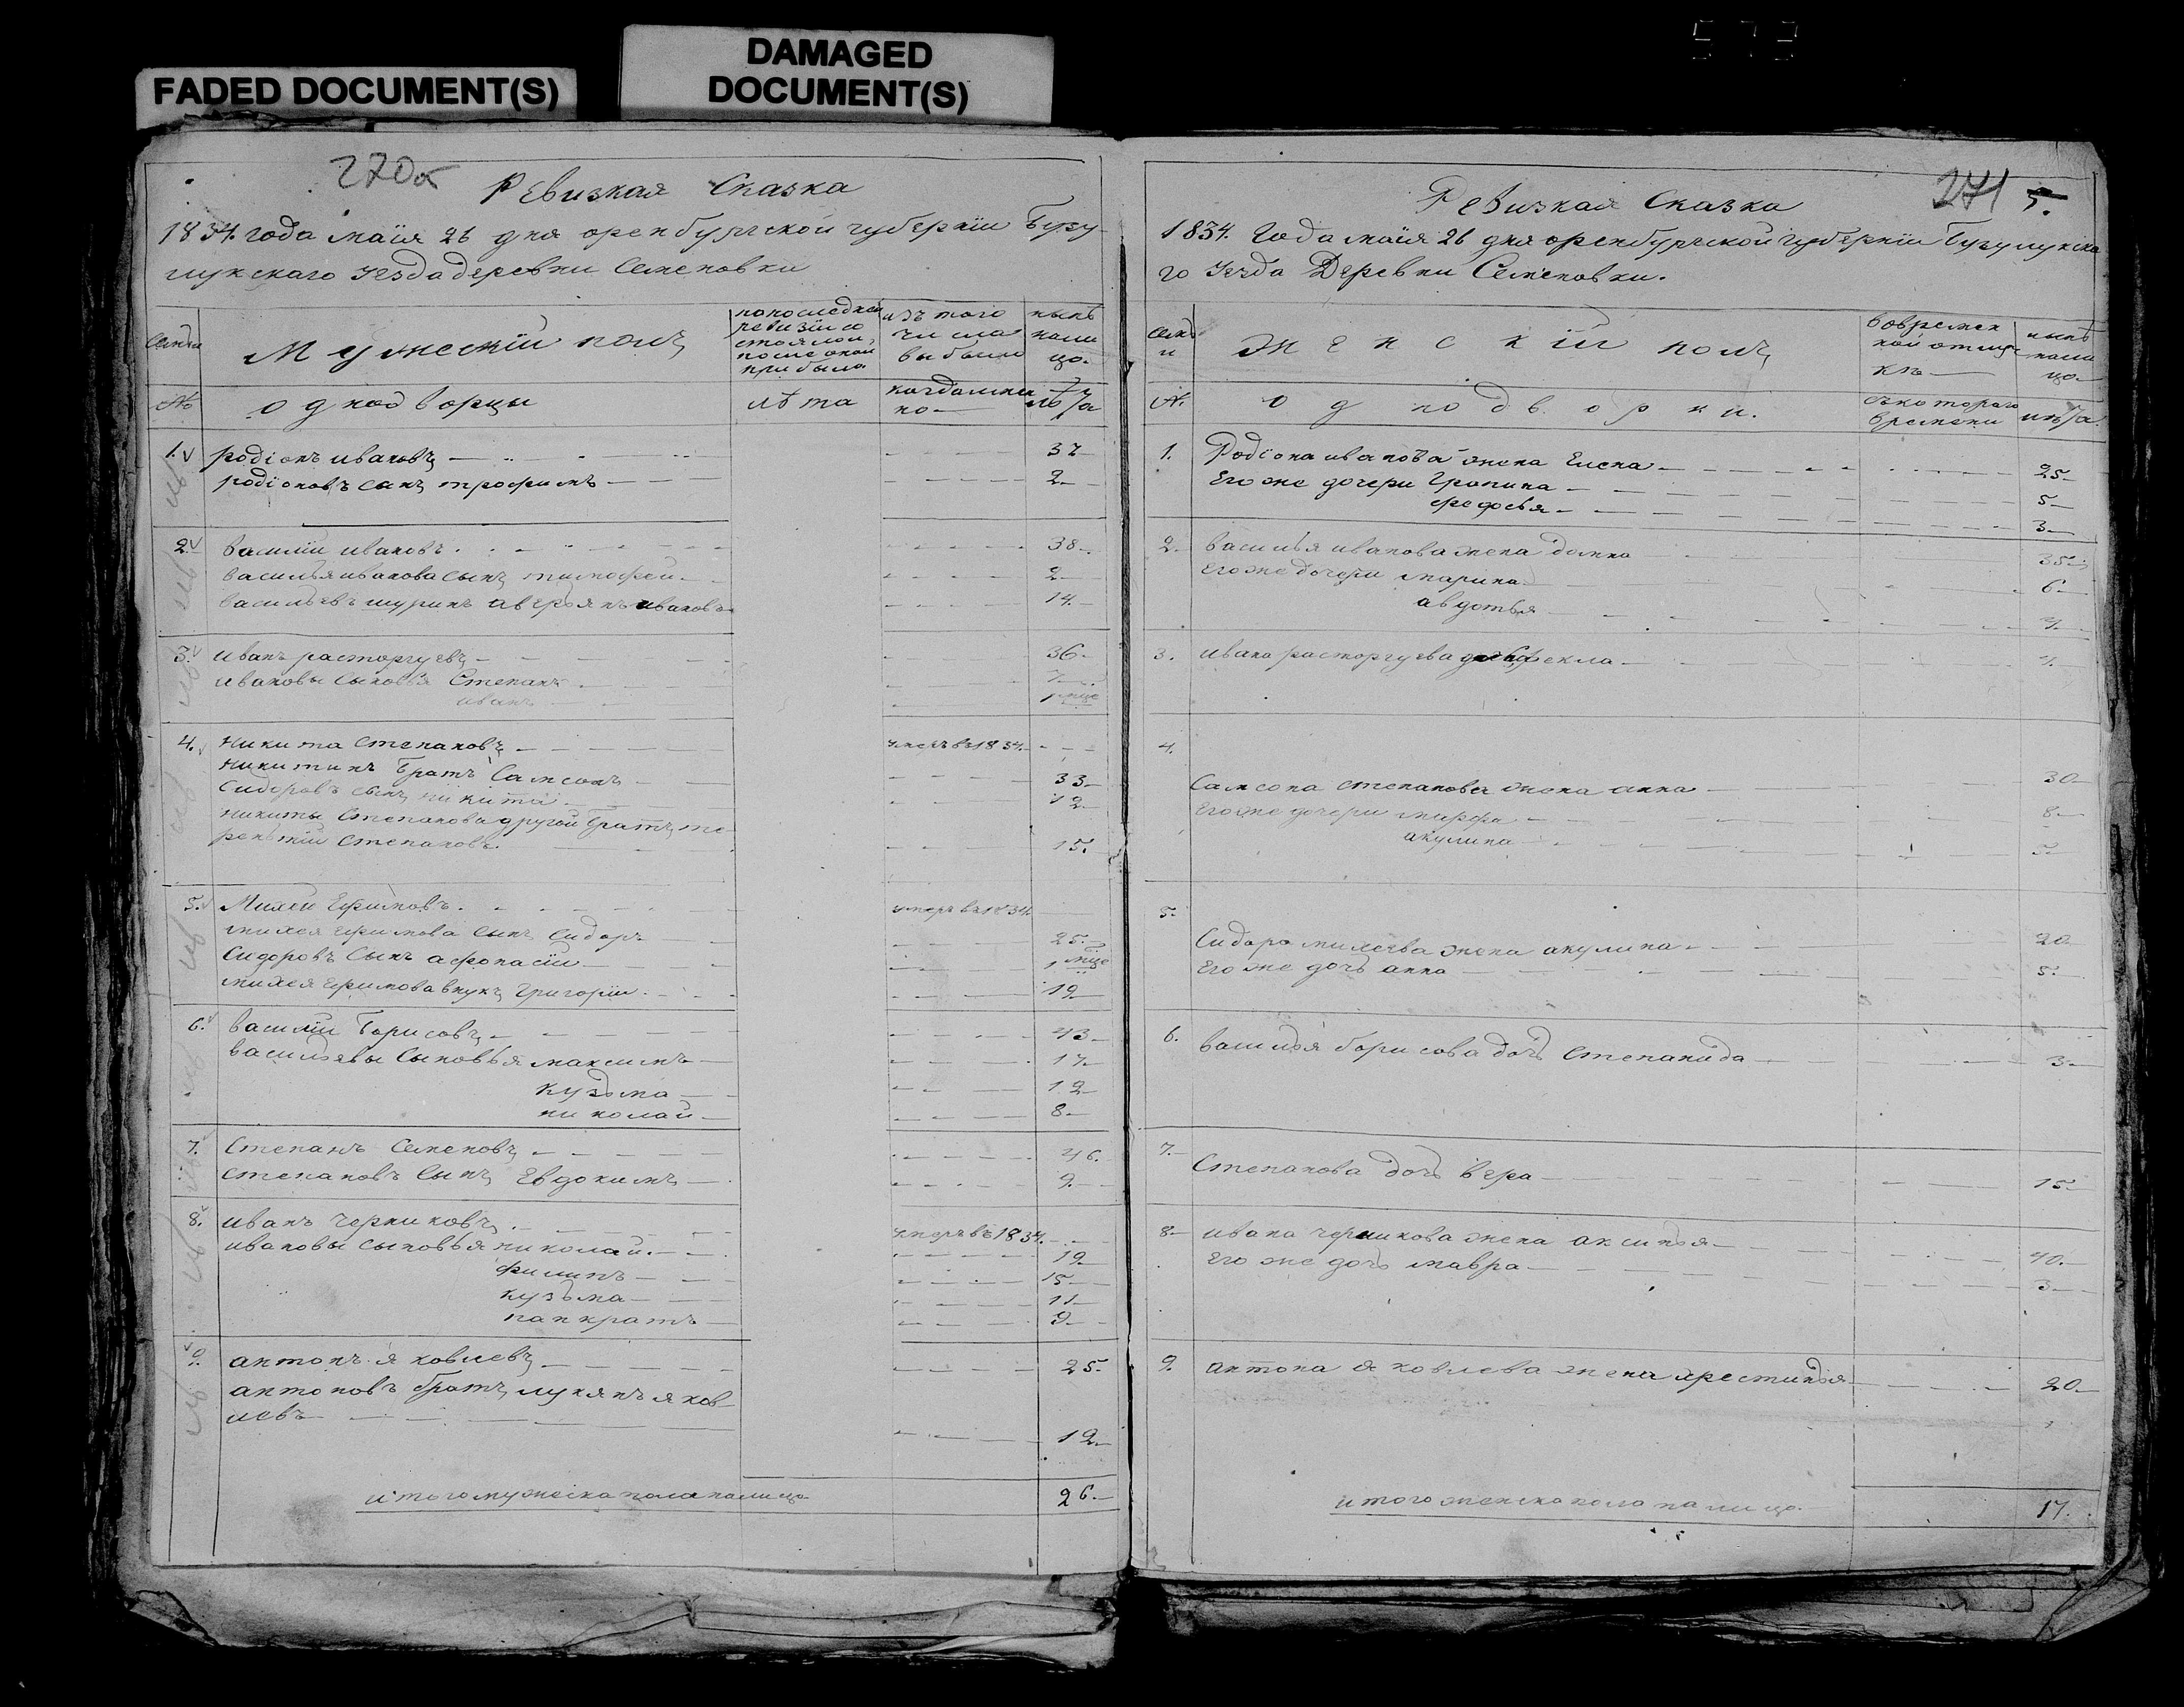 FADED DOCUMENT(S)
DAMAGED
DOCUMENT(S)
270об
Ревизкая Сказка
1834. года маiя 26 дня оренбургской губернiи Бугу
лукскаго уезда деревни Семеновки
семьи
Мужескiй полъ
попоследней
ревизiи со
стояло и,
после оной
прибыло
изъ того
числа
выбыли
ныне
нали
цо
№
однодворцы
лѣта
когда имен
но
лѣта
1. родiонъ ивановъ 37
родiоновъ сынъ трофимъ 2
2. василiй ивановъ 38
василья иванова сынъ тимофей 2
васильевъ шуринъ аверьянъ ивановъ 14
3. иванъ расторгуевъ 36
ивановы сыновья Степанъ 7
иванъ
4. никита степановъ умеръ въ 1834.
никитинъ братъ Самсонъ 33
Сидоровъ сынъ никита 12
никиты Степанова другой братъ, те
рентiй степановъ 15.
5. Михей Ефимовъ умеръ въ 1834.
михея ефимова сынъ Сидоръ 25.
Сидоровъ Сынъ афонасiй
михея ефимова внукъ Григорiй 19
6. василiй Борисовъ 43
васильевы сыновья максимъ 17
кузьма 12
николай 8
7. Степанъ Семеновъ 46.
степановъ Сынъ Евдокимъ 9.
8. иванъ черниковъ умеръ въ 1834.
ивановы сыновья николай 19
филипъ 15
кузьма 11
панкратъ 9
9. антонъ яковлевъ 25.
антоновъ братъ, лукянъ яков
левъ 12
итого мужеска пола налицо 26
271 5.
Ревизкая Сказка
1834. Года маiя 26 дня оренбургской губернiи Бугулукска
го уезда Деревни Семеновки.
семь
и
женскiй полъ
вовремен
ной отлуч
къ
ныне
нали
цо
№.
однодворки.
съкотораго
времени
лѣта.
1. Родiона иванова жена Елена 25
Его же дочери Грапина 5
федосья 3
2. василья иванова жена домна 35
Его же дочери марина 6
авдотья 4
3. ивана расторгуева дочь фекла 4
4.
Самсона степанова жена анна 30
Его же дочери марфа 8
акулина 5
5.
Сидора михеева жена акулина 20
Его же дочь анна 5.
6. василья борисова дочь степанида 3
7.
Степанова дочь вера 15
8. ивана черникова жена аксинья 40.
Его же дочь мавра 3
9. антона яковлева жена хрестинья 20
итого женска пола налицо 17.